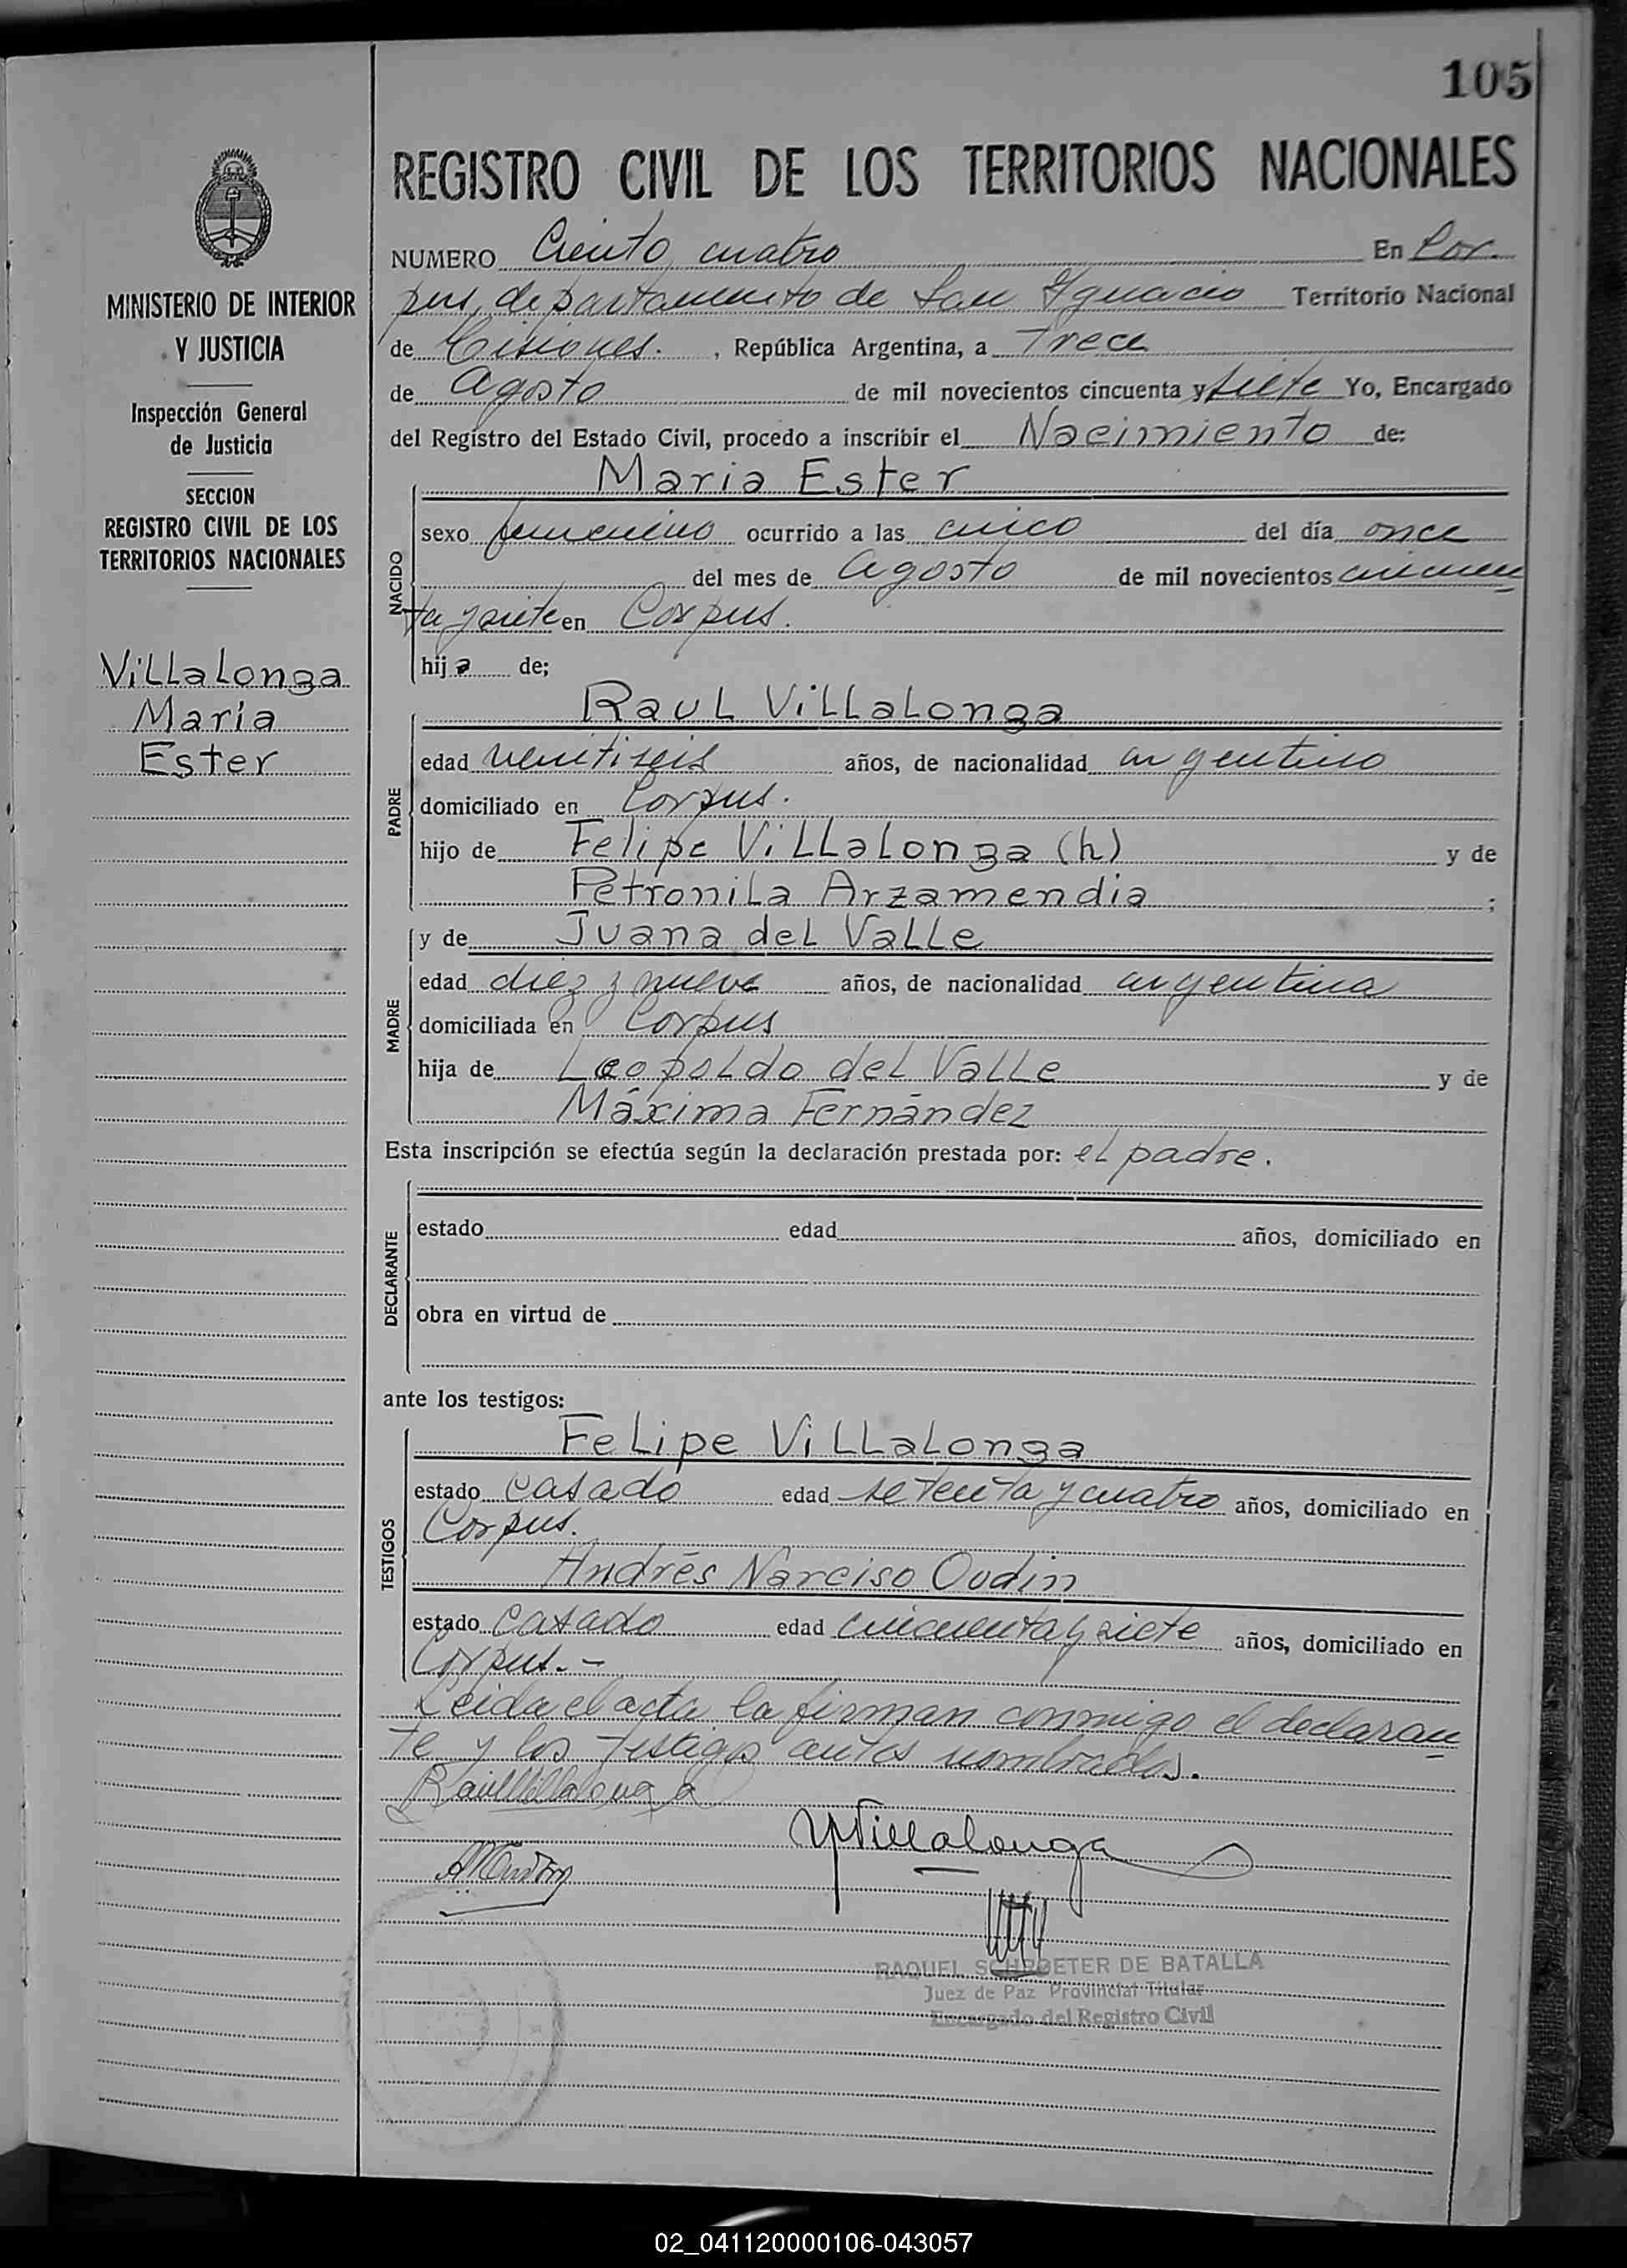 105
REGISTRO CIVIL DE LOS TERRITORIOS NACIONALES
MINISTERIO DE INTERIOR
Y JUSTICIA
Inspección General
de Justicia
SECCION
REGISTRO CIVIL DE LOS
TERRITORIOS NACIONALES
Villalonga
Maria
Ester
NUMERO Ciento cuatro En Cor-
pus, departamento de San Ygnacio Territorio Nacional
de Misiones. , República Argentina, a Trece
de Agosto de mil novecientos cincuenta y siete Yo, Encargado
del Registro del Estado Civil, procedo a inscribir el Nacimiento de:
NACIDO
Maria Ester
sexo femenino ocurrido a las cinco del día once
del mes de Agosto de mil novecientos cincuen
ta y siete en Corpus.
hija de;
PADRE
Raul Villalonga
edad veintiseis años, de nacionalidad argentino
domiciliado en Corpus.
hijo de Felipe Villalonga (h) y de
Petronila Arzamendia ;
MADRE
y de Juana del Valle
edad diez y nueve años, de nacionalidad argentina
domiciliada en Corpus
hija de Leopoldo del Valle y de
Máxima Fernández
Esta inscripción se efectúa según la declaración prestada por: el padre.
DECLARANTE
estado edad años, domiciliado en
obra en virtud de
ante los testigos:
TESTIGOS
Felipe Villalonga
estado casado edad setenta y cuatro años, domiciliado en
Corpus.
Andrés Narciso Oudin
estado casado edad cincuenta y siete años, domiciliado en
Corpus.-
Leida el acta la firman conmigo el declaran
te y los testigos antes nombrados.
Raúl Villalonga
Villalonga
RAQUEL SCHROETER DE BATALLA
Juez de Paz Provincial Titular
Encargado del Registro Civil
02_041120000106-043057